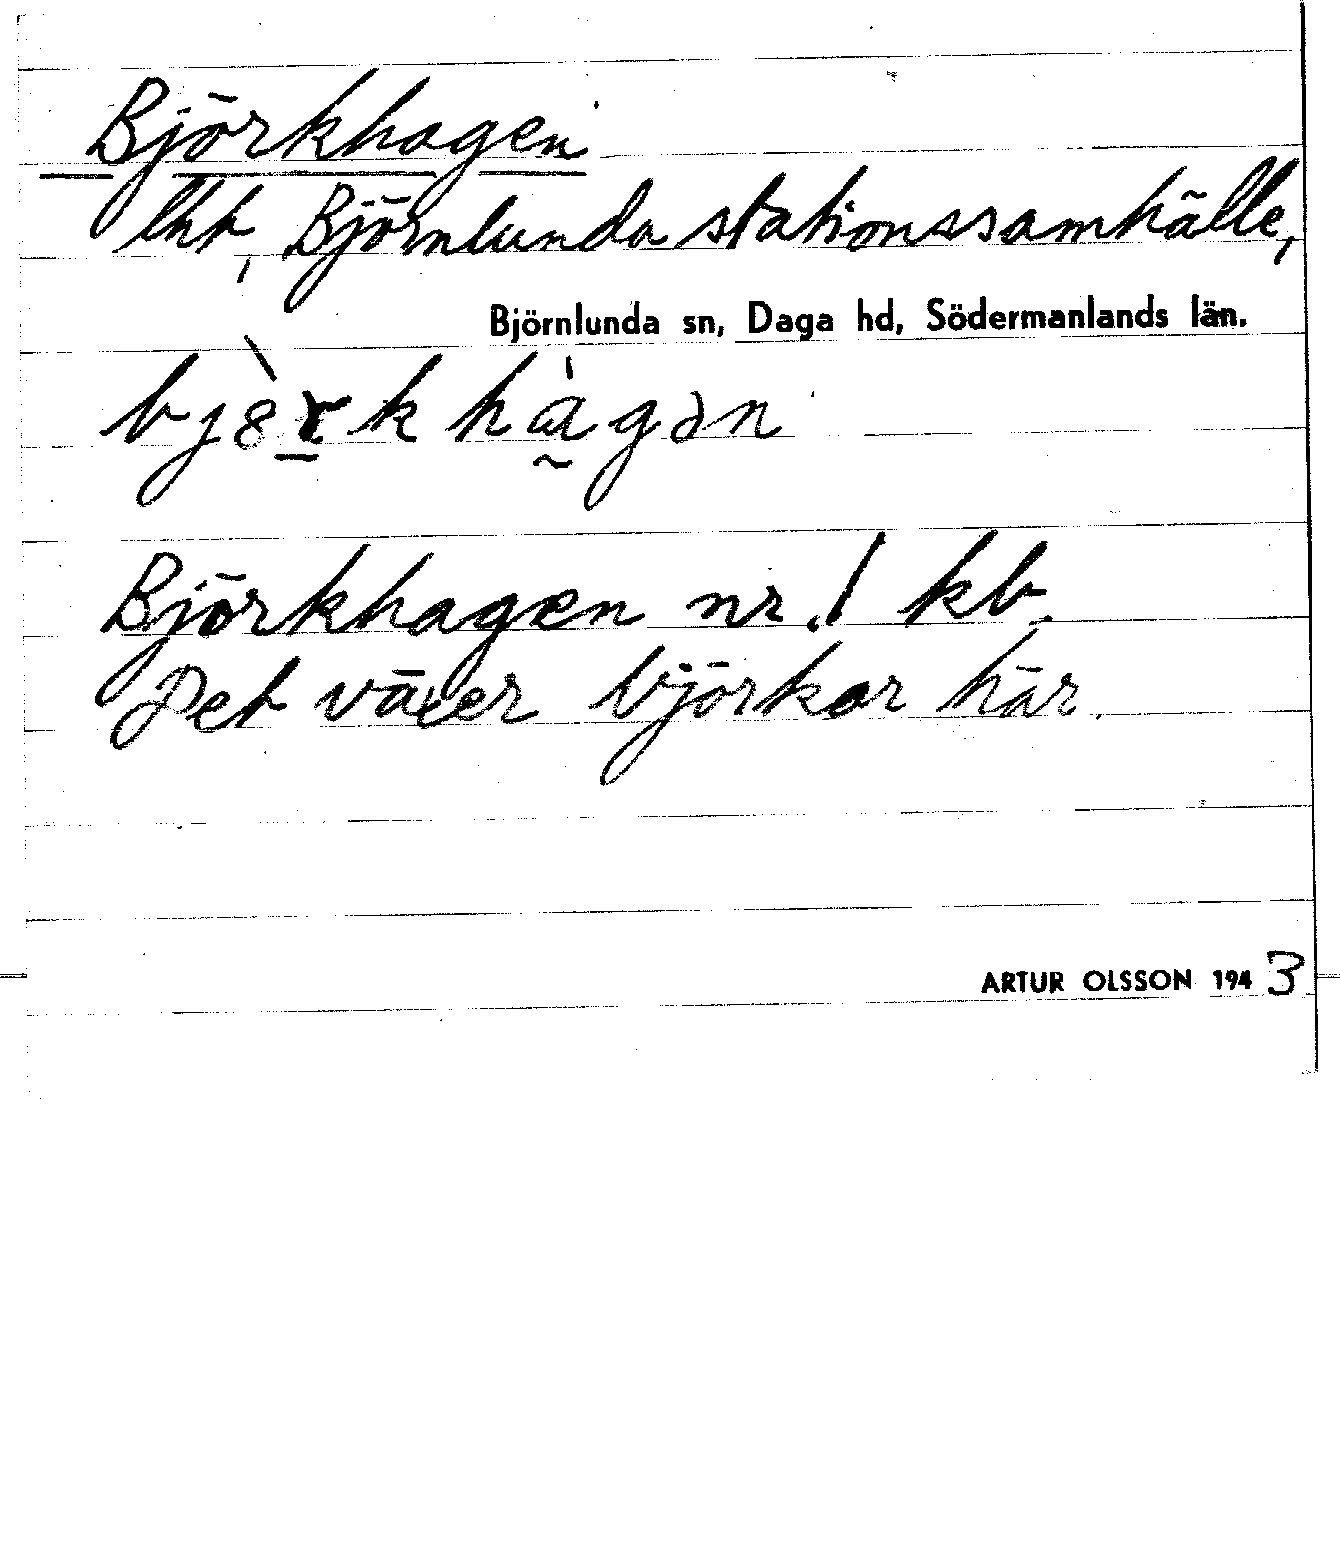 Björkhagen
lht, Björnlunda stationssamhälle,
Björnlunda sn, Daga hd, Södermanlands län.
bjɵ̀rk hàgən
Björkhagen nr.1 kb.
Det växer björkar här.
ARTUR OLSSON 1943